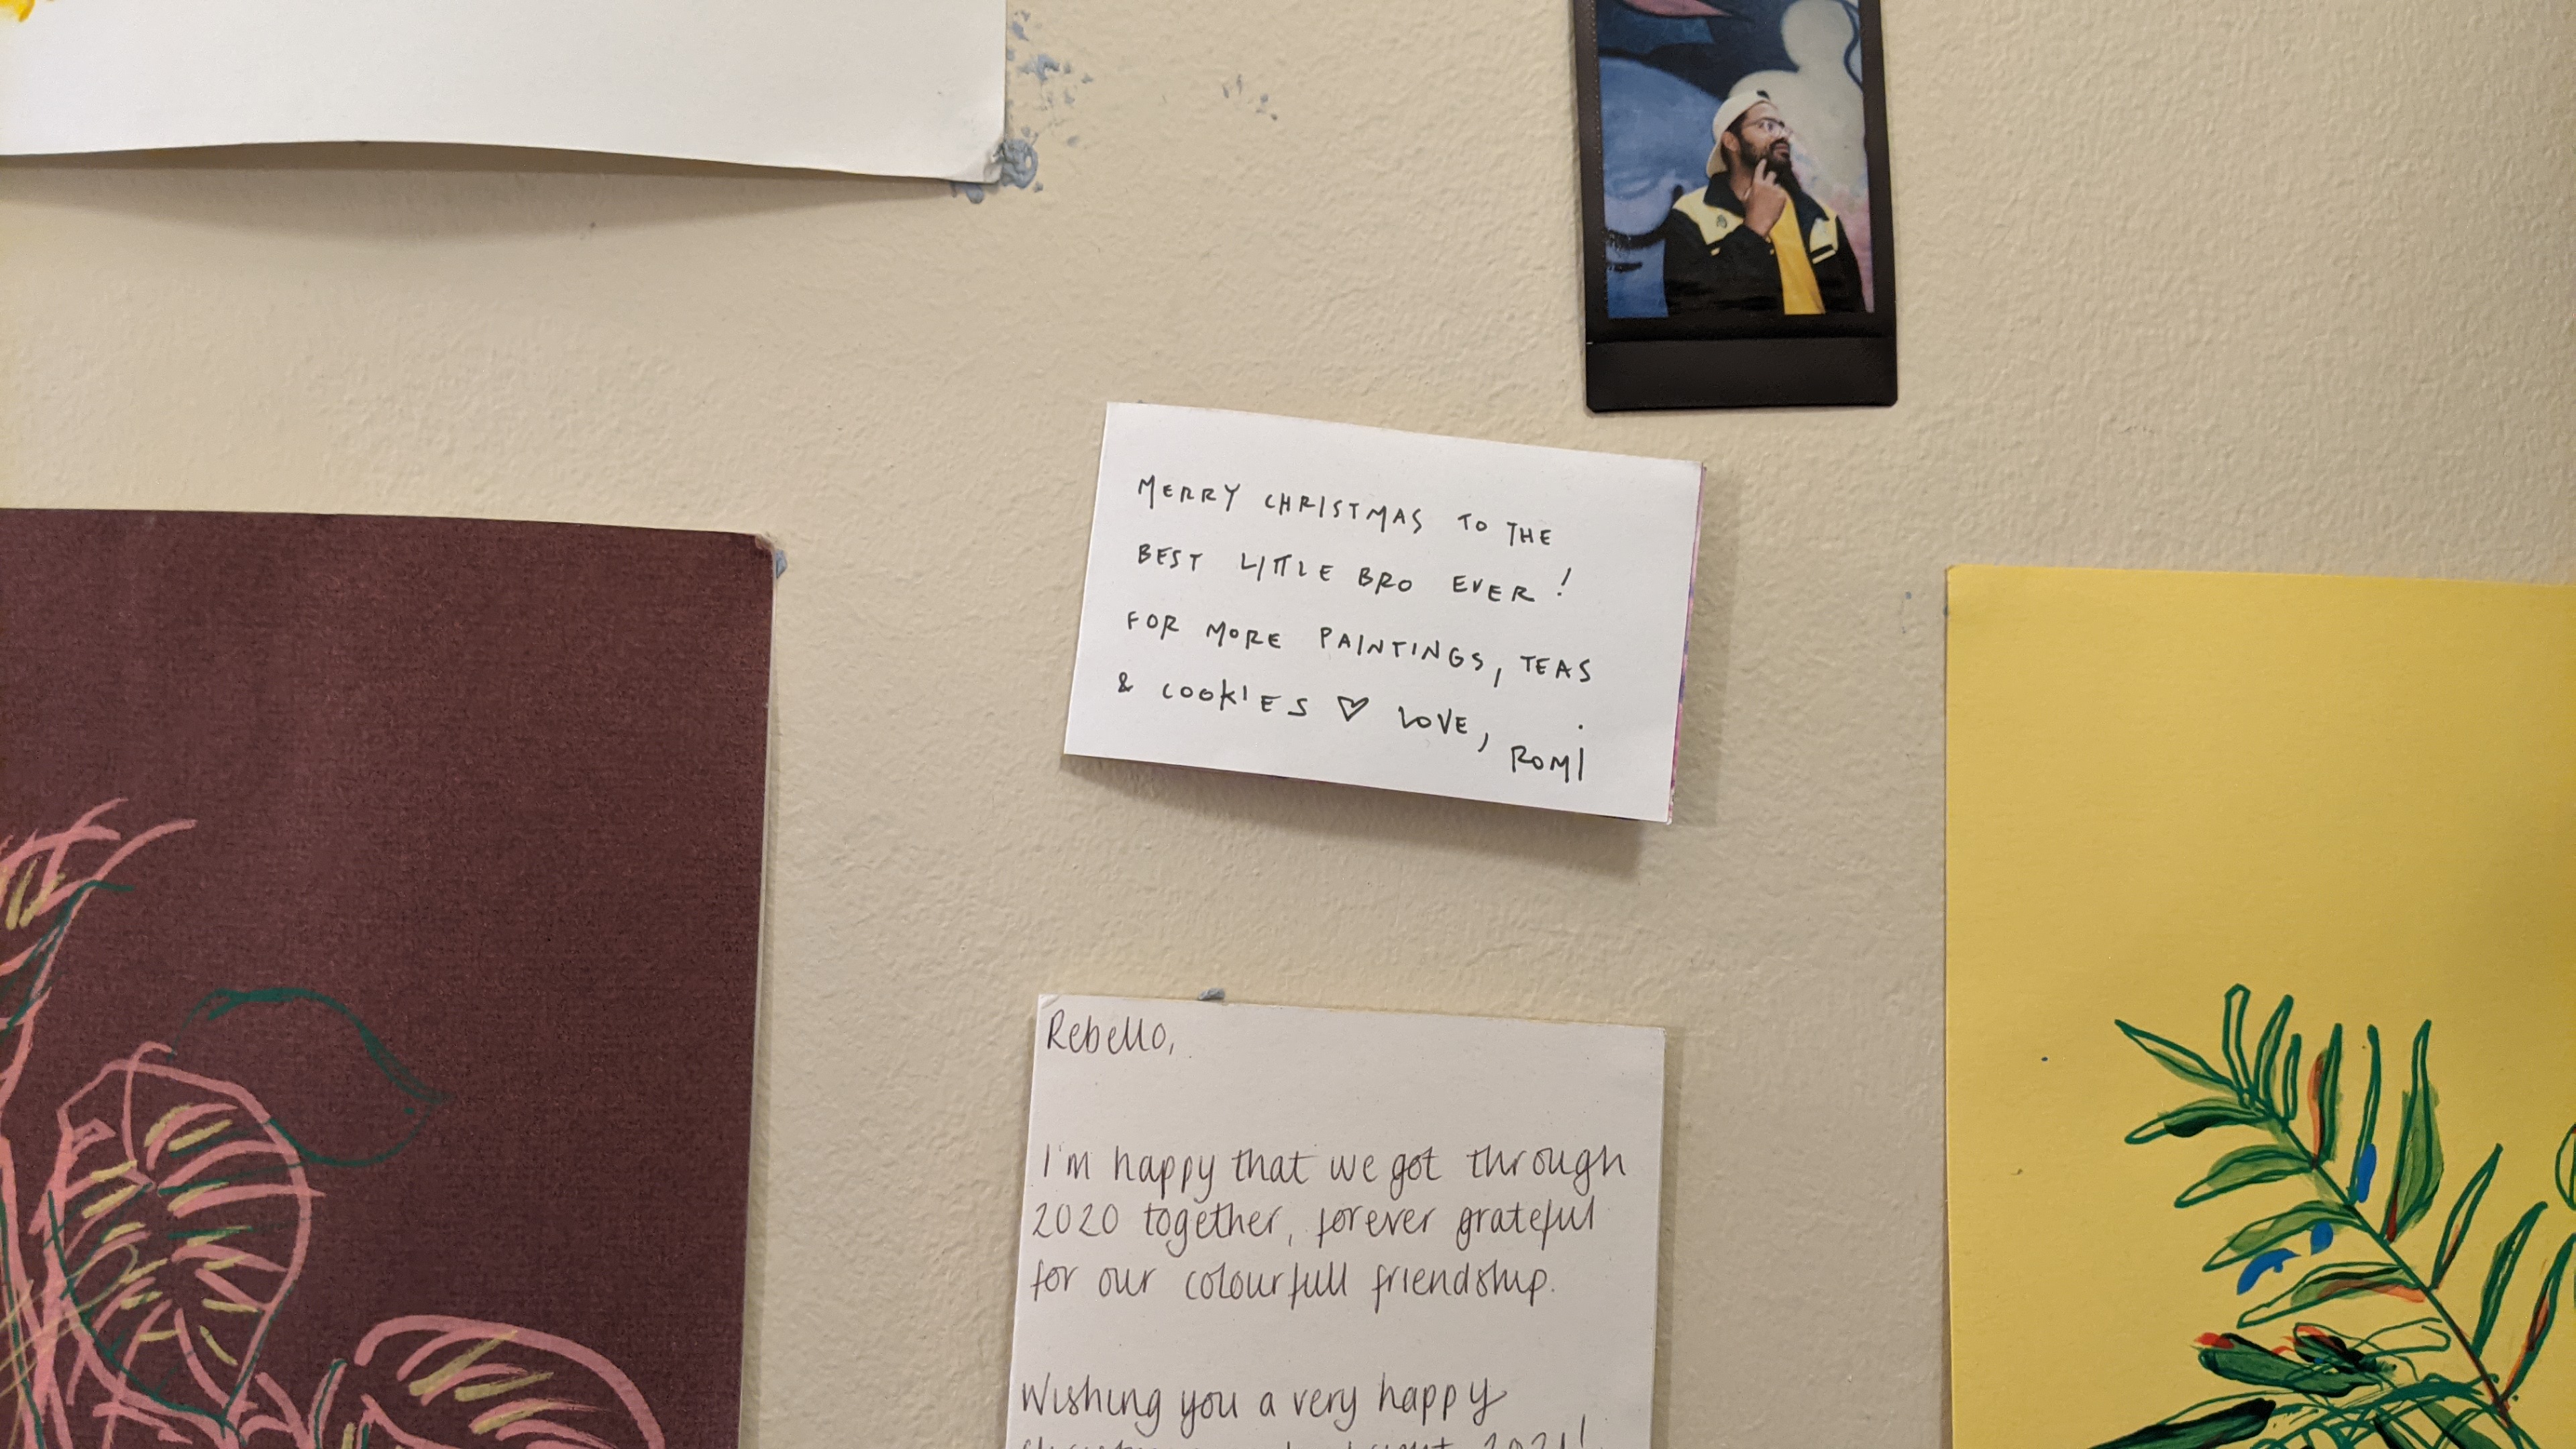 MERRY CHRISTMAS TO THE
BEST LITTLE BRO EVER!
FOR MORE PAINTINGS, TEAS
& COOKIES ♡ LOVE, ROMI
Rebello,
I'm happy that we got through
2020 together, forever grateful
for our colourfull friendship.
Wishing you a very happy
2021!